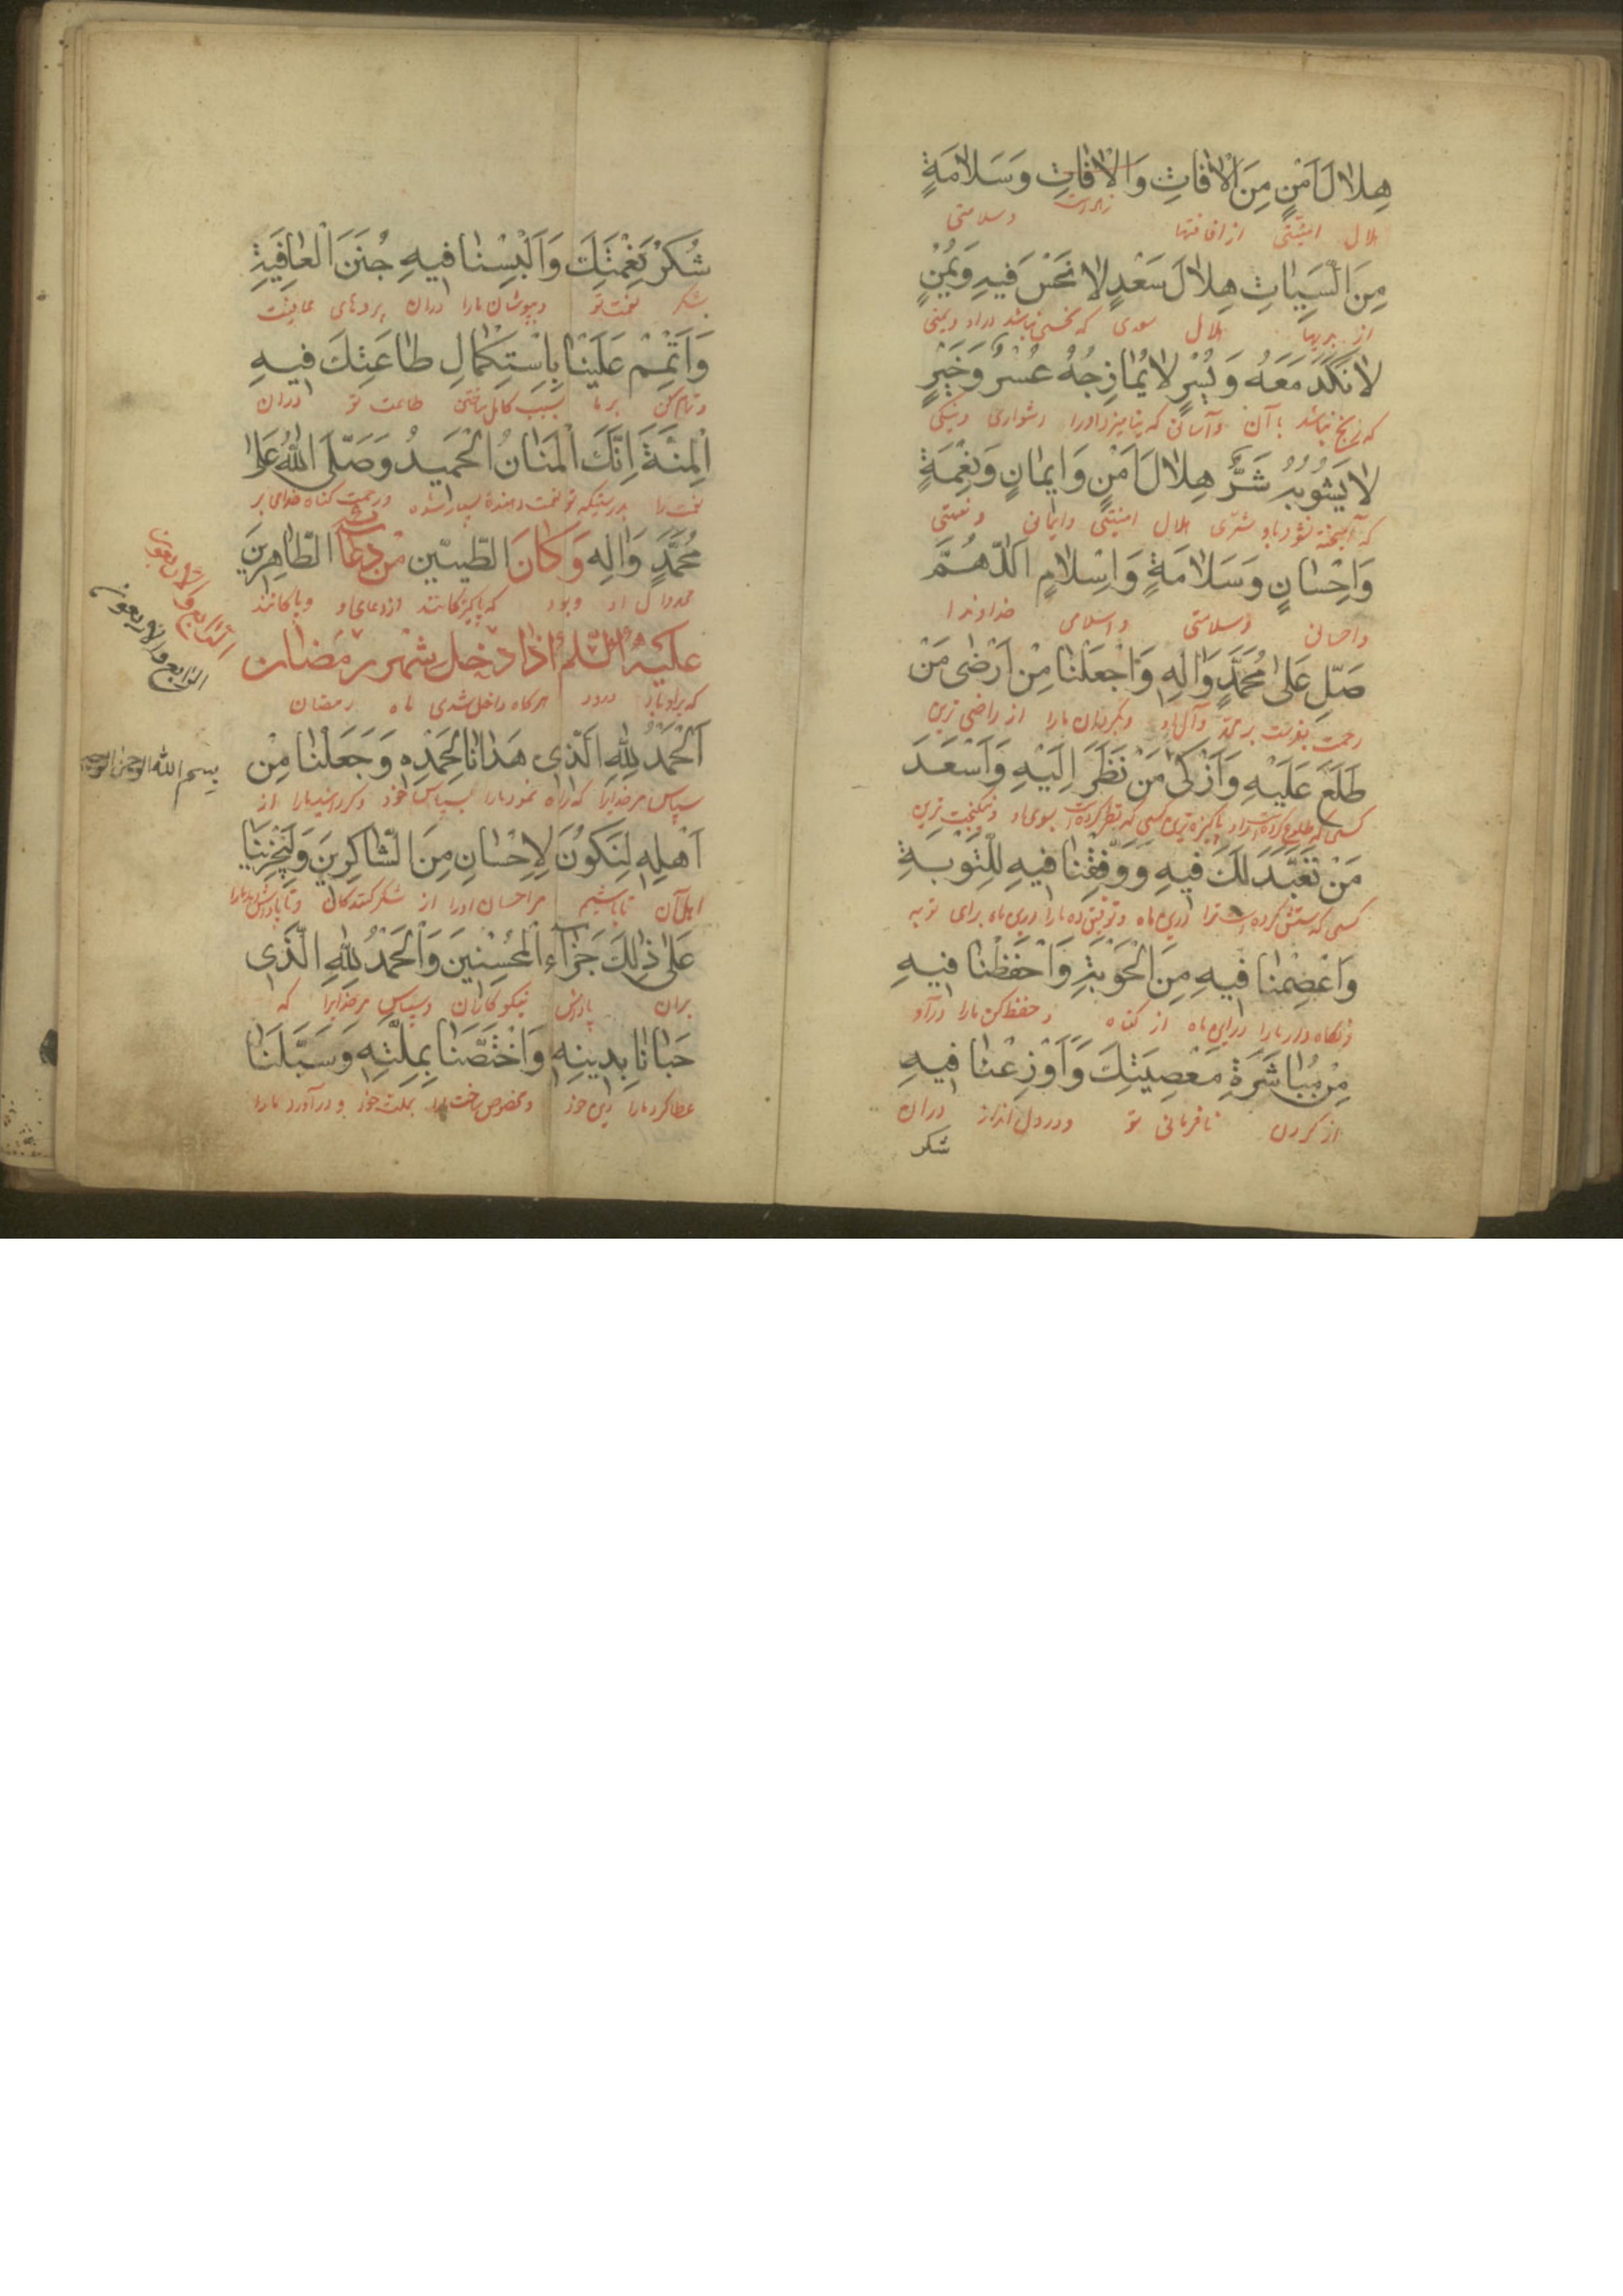 هِلَالَ اَمْنٍ مِنَ الْاٰفَاتِ وَالْاٰفَاتِ وَسَلَامَةٍ
هلال امنیّتی از آفتها وسلامتی
مِنَ السَّيِّئَاتِ هِلَالَ سَعْدٍ لَا نَحْسَ فِيهِ وَيُمْنٍ
از بدیها هلال سعدی که نحسی نباشد دراو ویمنی
لَا نَكَدَ مَعَهُ وَيُسْرٍ لَا يُمَازِجُهُ عُسْرٌ وَخَيْرٍ
که رنج نباشد با آن وآسانی که نیامیزد اورا دشواری ونیکی
لَا يَشُوبُهُ شَرٌّ هِلَالَ اَمْنٍ وَاِيمَانٍ وَنِعْمَةٍ
که آمیخته نشود باو شرّی هلال امنیّتی وایمانی ونعمتی
وَاِحْسَانٍ وَسَلَامَةٍ وَاِسْلَامٍ اَللّٰهُمَّ
واحسانی وسلامتی واسلامی خداوندا
صَلِّ عَلٰى مُحَمَّدٍ وَاٰلِهِ وَاجْعَلْنَا مِنْ اَرْضٰى مَنْ
رحمت بفرست بر محمّد وآل او وبگردان مارا از راضی ترین
طَلَعَ عَلَيْهِ وَاَزْكٰى مَنْ نَظَرَ اِلَيْهِ وَاَسْعَدَ
کسی که طلوع کرده است براو پاکیزه ترین کسی که نظر کرده است بسوی او ونیکبخت ترین
مَنْ تَعَبَّدَ لَكَ فِيهِ وَوَفِّقْنَا فِيهِ لِلتَّوْبَةِ
کسی که پرستش کرده است ترا دراین ماه وتوفیق ده مارا دراین ماه برای توبه
وَاعْصِمْنَا فِيهِ مِنَ الْحَوْبَةِ وَاحْفَظْنَا فِيهِ
ونگاه دار مارا دراین ماه از گناه وحفظ کن مارا دراو
مِنْ مُبَاشَرَةِ مَعْصِيَتِكَ وَاَوْزِعْنَا فِيهِ
از کردن نافرمانی تو ودردل انداز دران
شکر
شُكْرَ نِعْمَتِكَ وَاَلْبِسْنَا فِيهِ جُنَنَ الْعَافِيَةِ
شکر نعمت تو وبپوشان مارا دران پردهای عافیت
وَاَتْمِمْ عَلَيْنَا بِاسْتِكْمَالِ طَاعَتِكَ فِيهِ
وتمام کن برما بسبب کامل ساختن طاعت تو دران
الْمِنَّةَ اِنَّكَ الْمَنَّانُ الْحَمِيدُ وَصَلَّى اللّٰهُ عَلٰى
نعمت را بدرستیکه تو نعمت دهندۀ بسیار ستوده ورحمت کناد خدای بر
مُحَمَّدٍ وَاٰلِهِ وَكَانَ الطَّيِّبِينَ مِنْ دُعَائِهِ الطَّاهِرِينَ
محمد وآل او وبود که پاکیزگانند ازدعای او وپاکانند
الرّابع والاربعون
الرّابع والاربعون
عَلَيْهِ السَّلٰمُ اِذَا دَخَلَ شَهْرُ رَمَضَانَ
که براوباد درود هرگاه داخل شدی ماه رمضان
بسم الله الرحمن الرحیم
اَلْحَمْدُ لِلّٰهِ الَّذِي هَدَانَا لِحَمْدِهِ وَجَعَلَنَا مِنْ
سپاس مرخدایرا که راه نمود مارا بسپاس خود وگردانید مارا از
اَهْلِهِ لِنَكُونَ لِاِحْسَانِهِ مِنَ الشَّاكِرِينَ وَلِيَجْزِيَنَا
اهل آن تاباشیم مراحسان اورا از شکر کنندگان وتا پاداش دهد مارا
عَلٰى ذٰلِكَ جَزَاۤءَ الْمُحْسِنِينَ وَالْحَمْدُ لِلّٰهِ الَّذِي
بران پاداش نیکوکاران وسپاس مرخدایرا که
حَبَانَا بِدِينِهِ وَاخْتَصَّنَا بِمِلَّتِهِ وَسَبَّلَنَا
عطا کرد مارا دین خود ومخصوص ساخت مارا بملت خود ودرآورد مارا